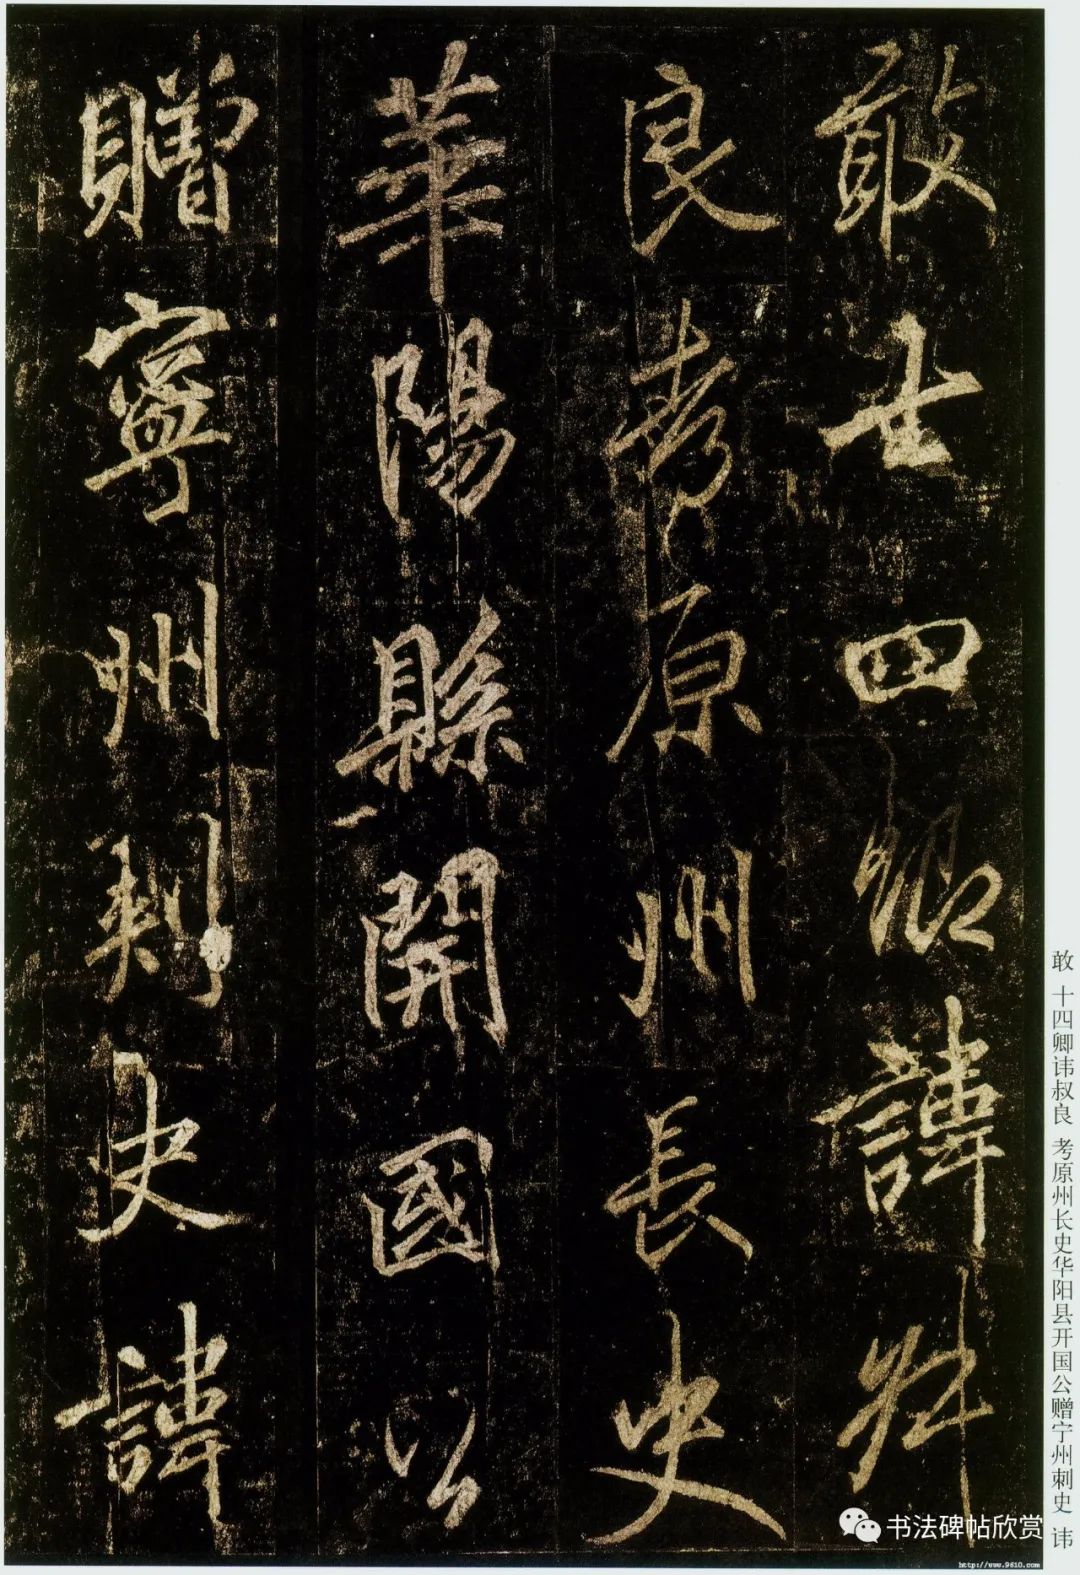 敢士四卿諱叔
良考原州長史
華陽縣開國公
贈寧州刺史諱
敢 十四卿讳叔良 考原州长史华阳县开国公赠宁州刺史 讳
书法碑帖欣赏
http://www.9610.com